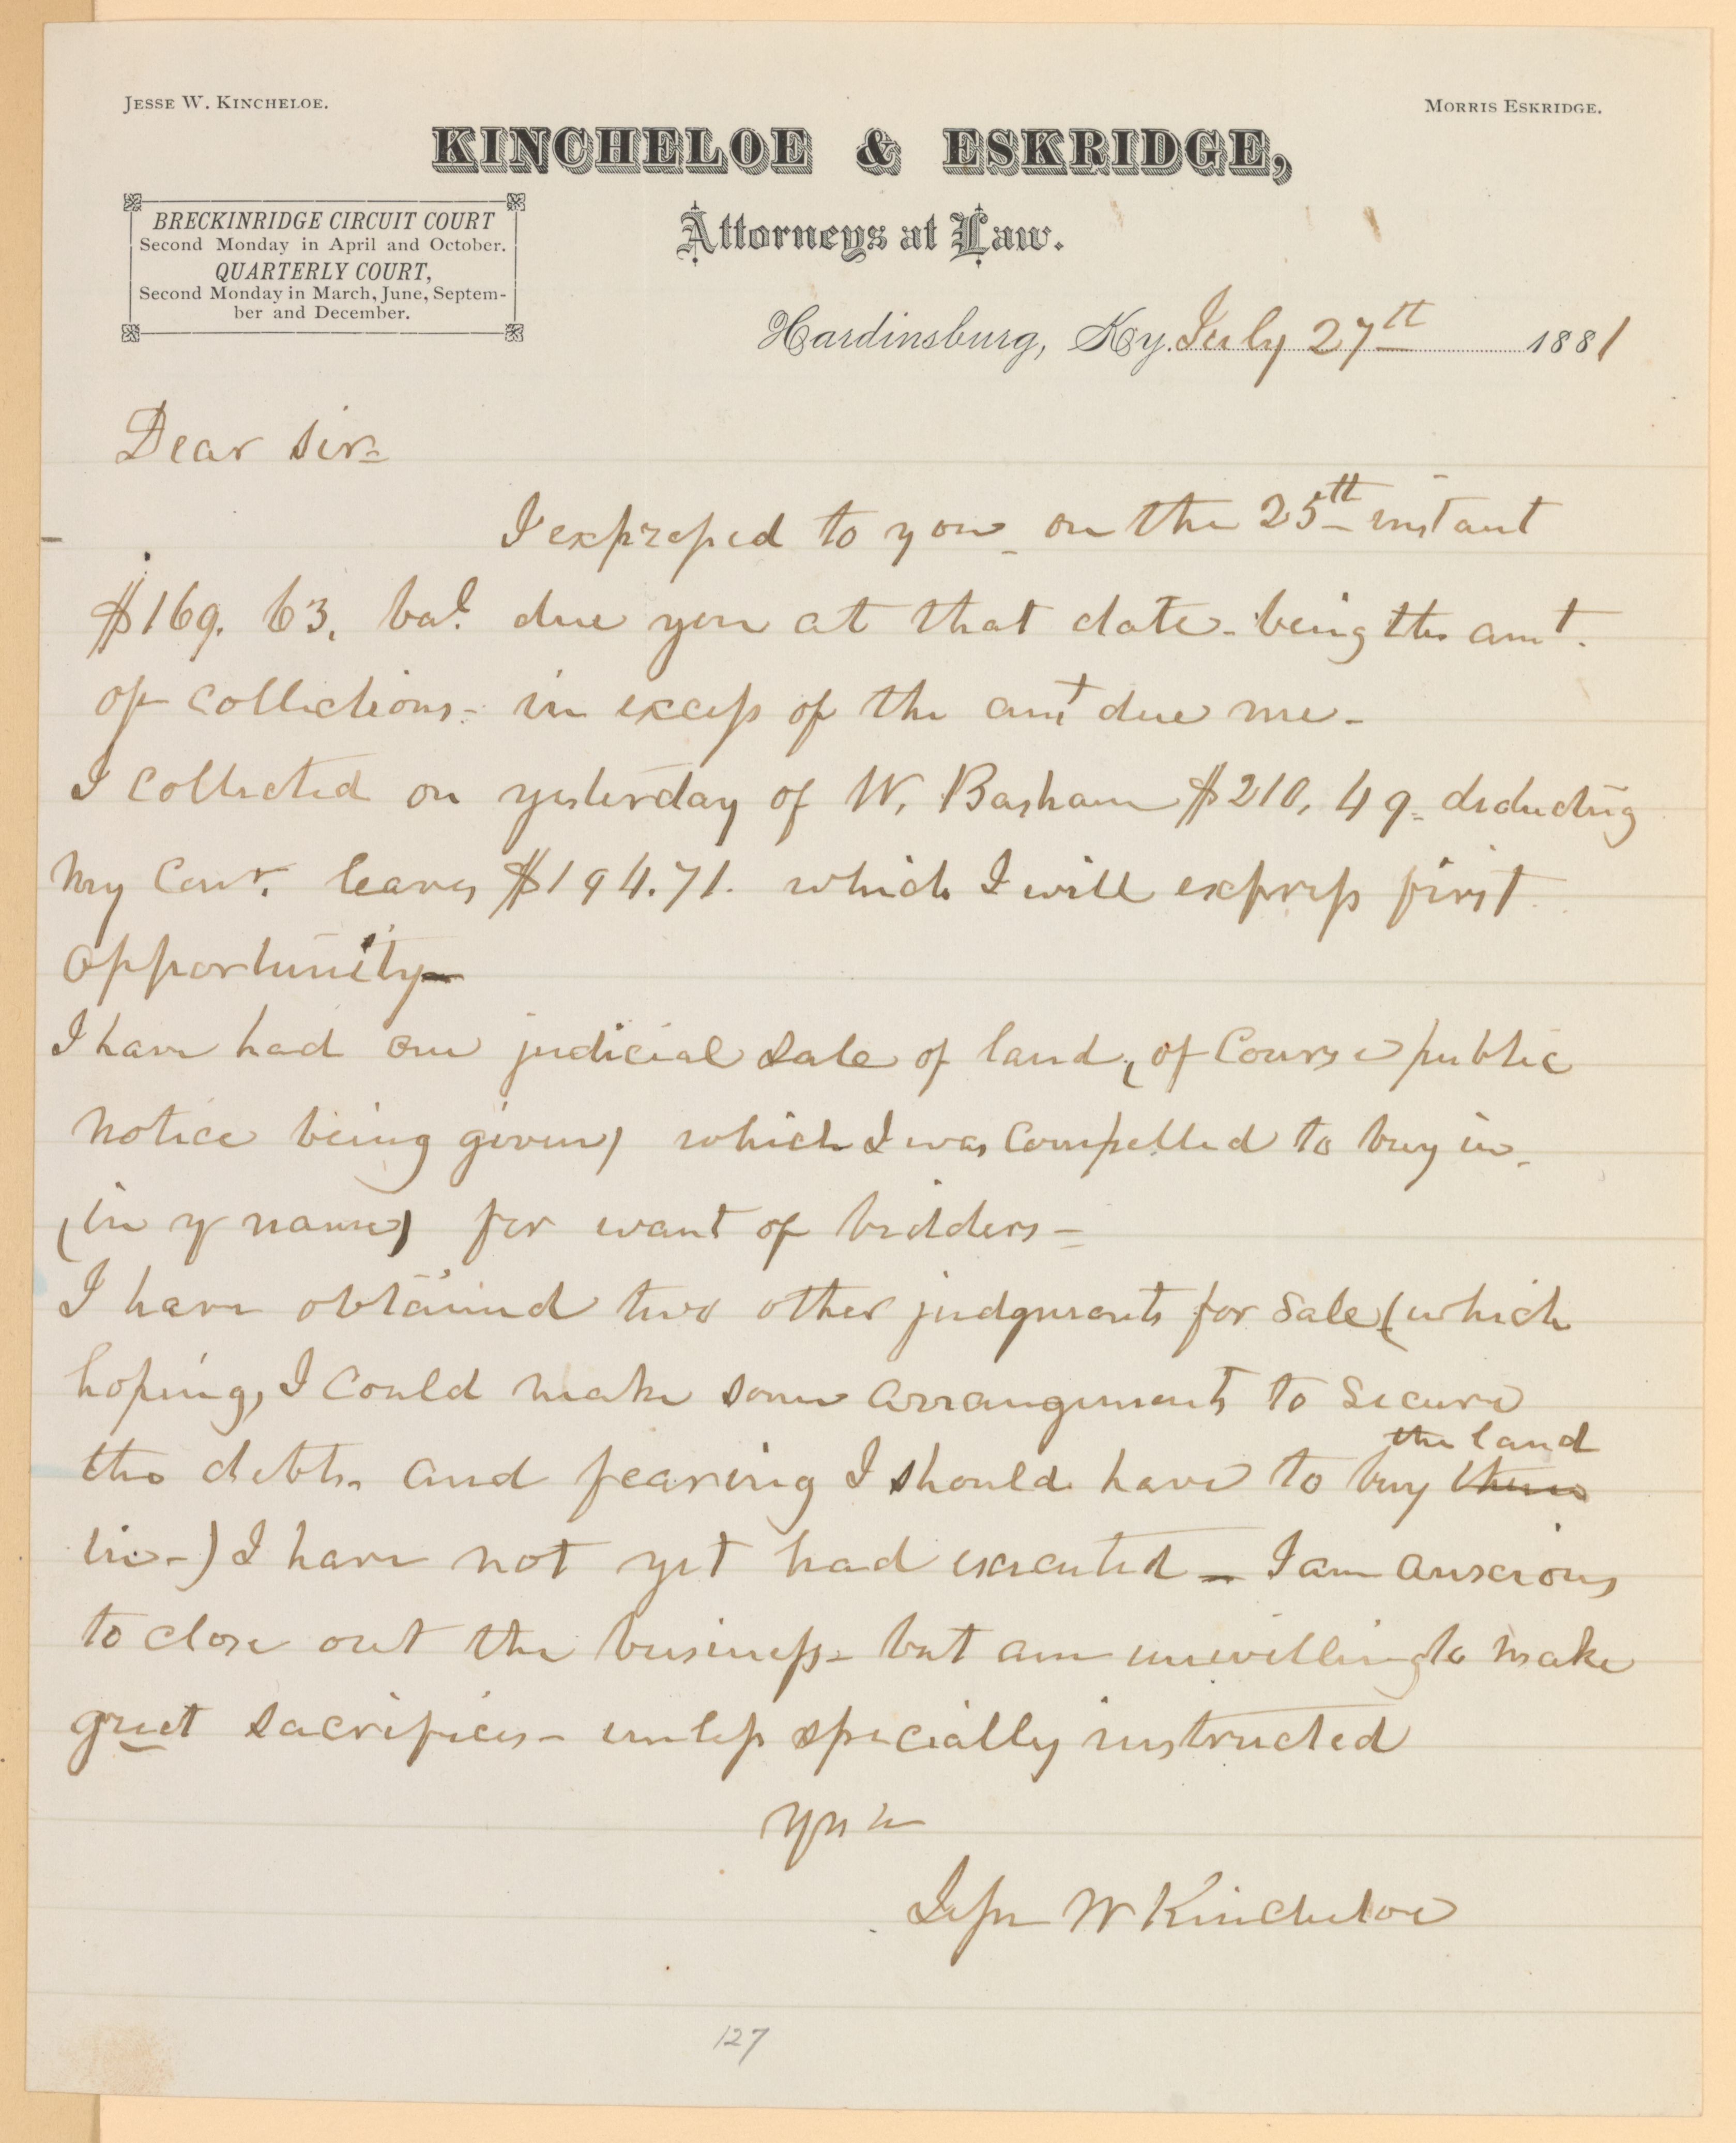 JESSE W. KINCHELOE.
MORRIS ESKRIDGE.
KINCHELOE & ESKRIDGE,
Attorneys at Law.
BRECKINRIDGE CIRCUIT COURT
Second Monday in April and October.
QUARTERLY COURT,
Second Monday in March, June, Septem-
ber and December.
Hardinsburg, Ky. July 27th 1881
Dear Sir-
I expressed to you - on the 25th instant
$169.63. bal. due you at that date - being the amt.
of collections - in excess of the amt due me -
I collected on yesterday of W. Basham $210.49 - deducting
my Comr. leaves $194.71. which I will express first
opportunity -
I have had one judicial sale of land, (of course public
notice being given) which I was compelled to buy in -
(in yr name) for want of bidders -
I have obtained two other judgments for sale (which
hoping, I could make some arrangements to secure
the debts. and fearing I should have to buy them the land
in -) I have not yet had executed - I am anxious
to close out the business - but am unwilling to make
great sacrifices - unless specially instructed
Yrs &c
Jesse W Kincheloe
127